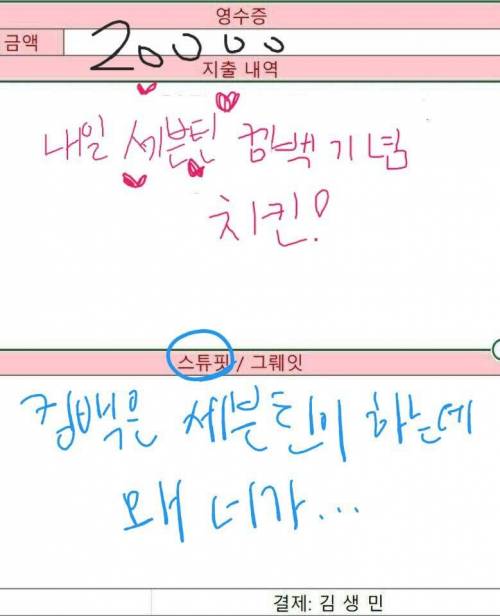 영수증
금액 20000
지출 내역
내일 세븐틴 컴백 기념
치킨!
스튜핏 / 그뤠잇
컴백은 세븐틴이 하는데
왜 너가...
결제: 김 생 민